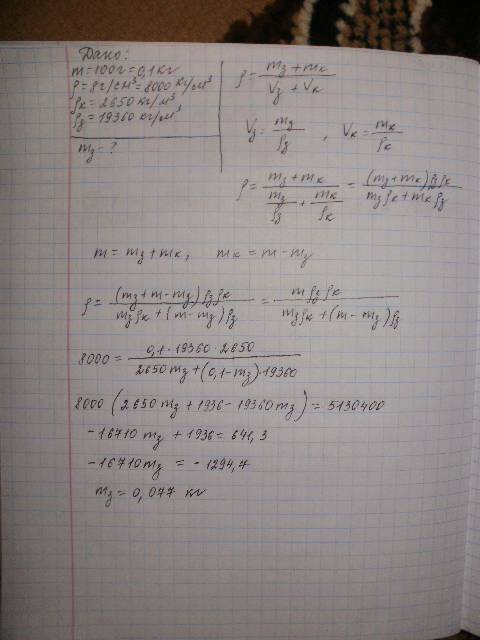 Дано:
m = 100г = 0,1 кг
ρ = 8г/см³ = 8000 кг/м³
ρк = 2650 кг/м³
ρз = 19360 кг/м³
mз = ?
ρ = (mз + mк)/(Vз + Vк)
Vз = mз/ρз , Vк = mк/ρк
ρ = (mз + mк)/(mз/ρз + mк/ρк) = (mз + mк)ρзρк/(mзρк + mкρз)
m = mз + mк, mк = m - mз
ρ = (mз + m - mз)ρзρк/(mзρк + (m - mз)ρз) = mρзρк/(mзρк + (m - mз)ρз)
8000 = 0,1 · 19360 · 2650/(2650mз + (0,1 - mз) · 19360)
8000 (2650 mз + 1936 - 19360mз) = 5130400
- 16710 mз + 1936 = 641,3
- 16710mз = - 1294,7
mз = 0,077 кг